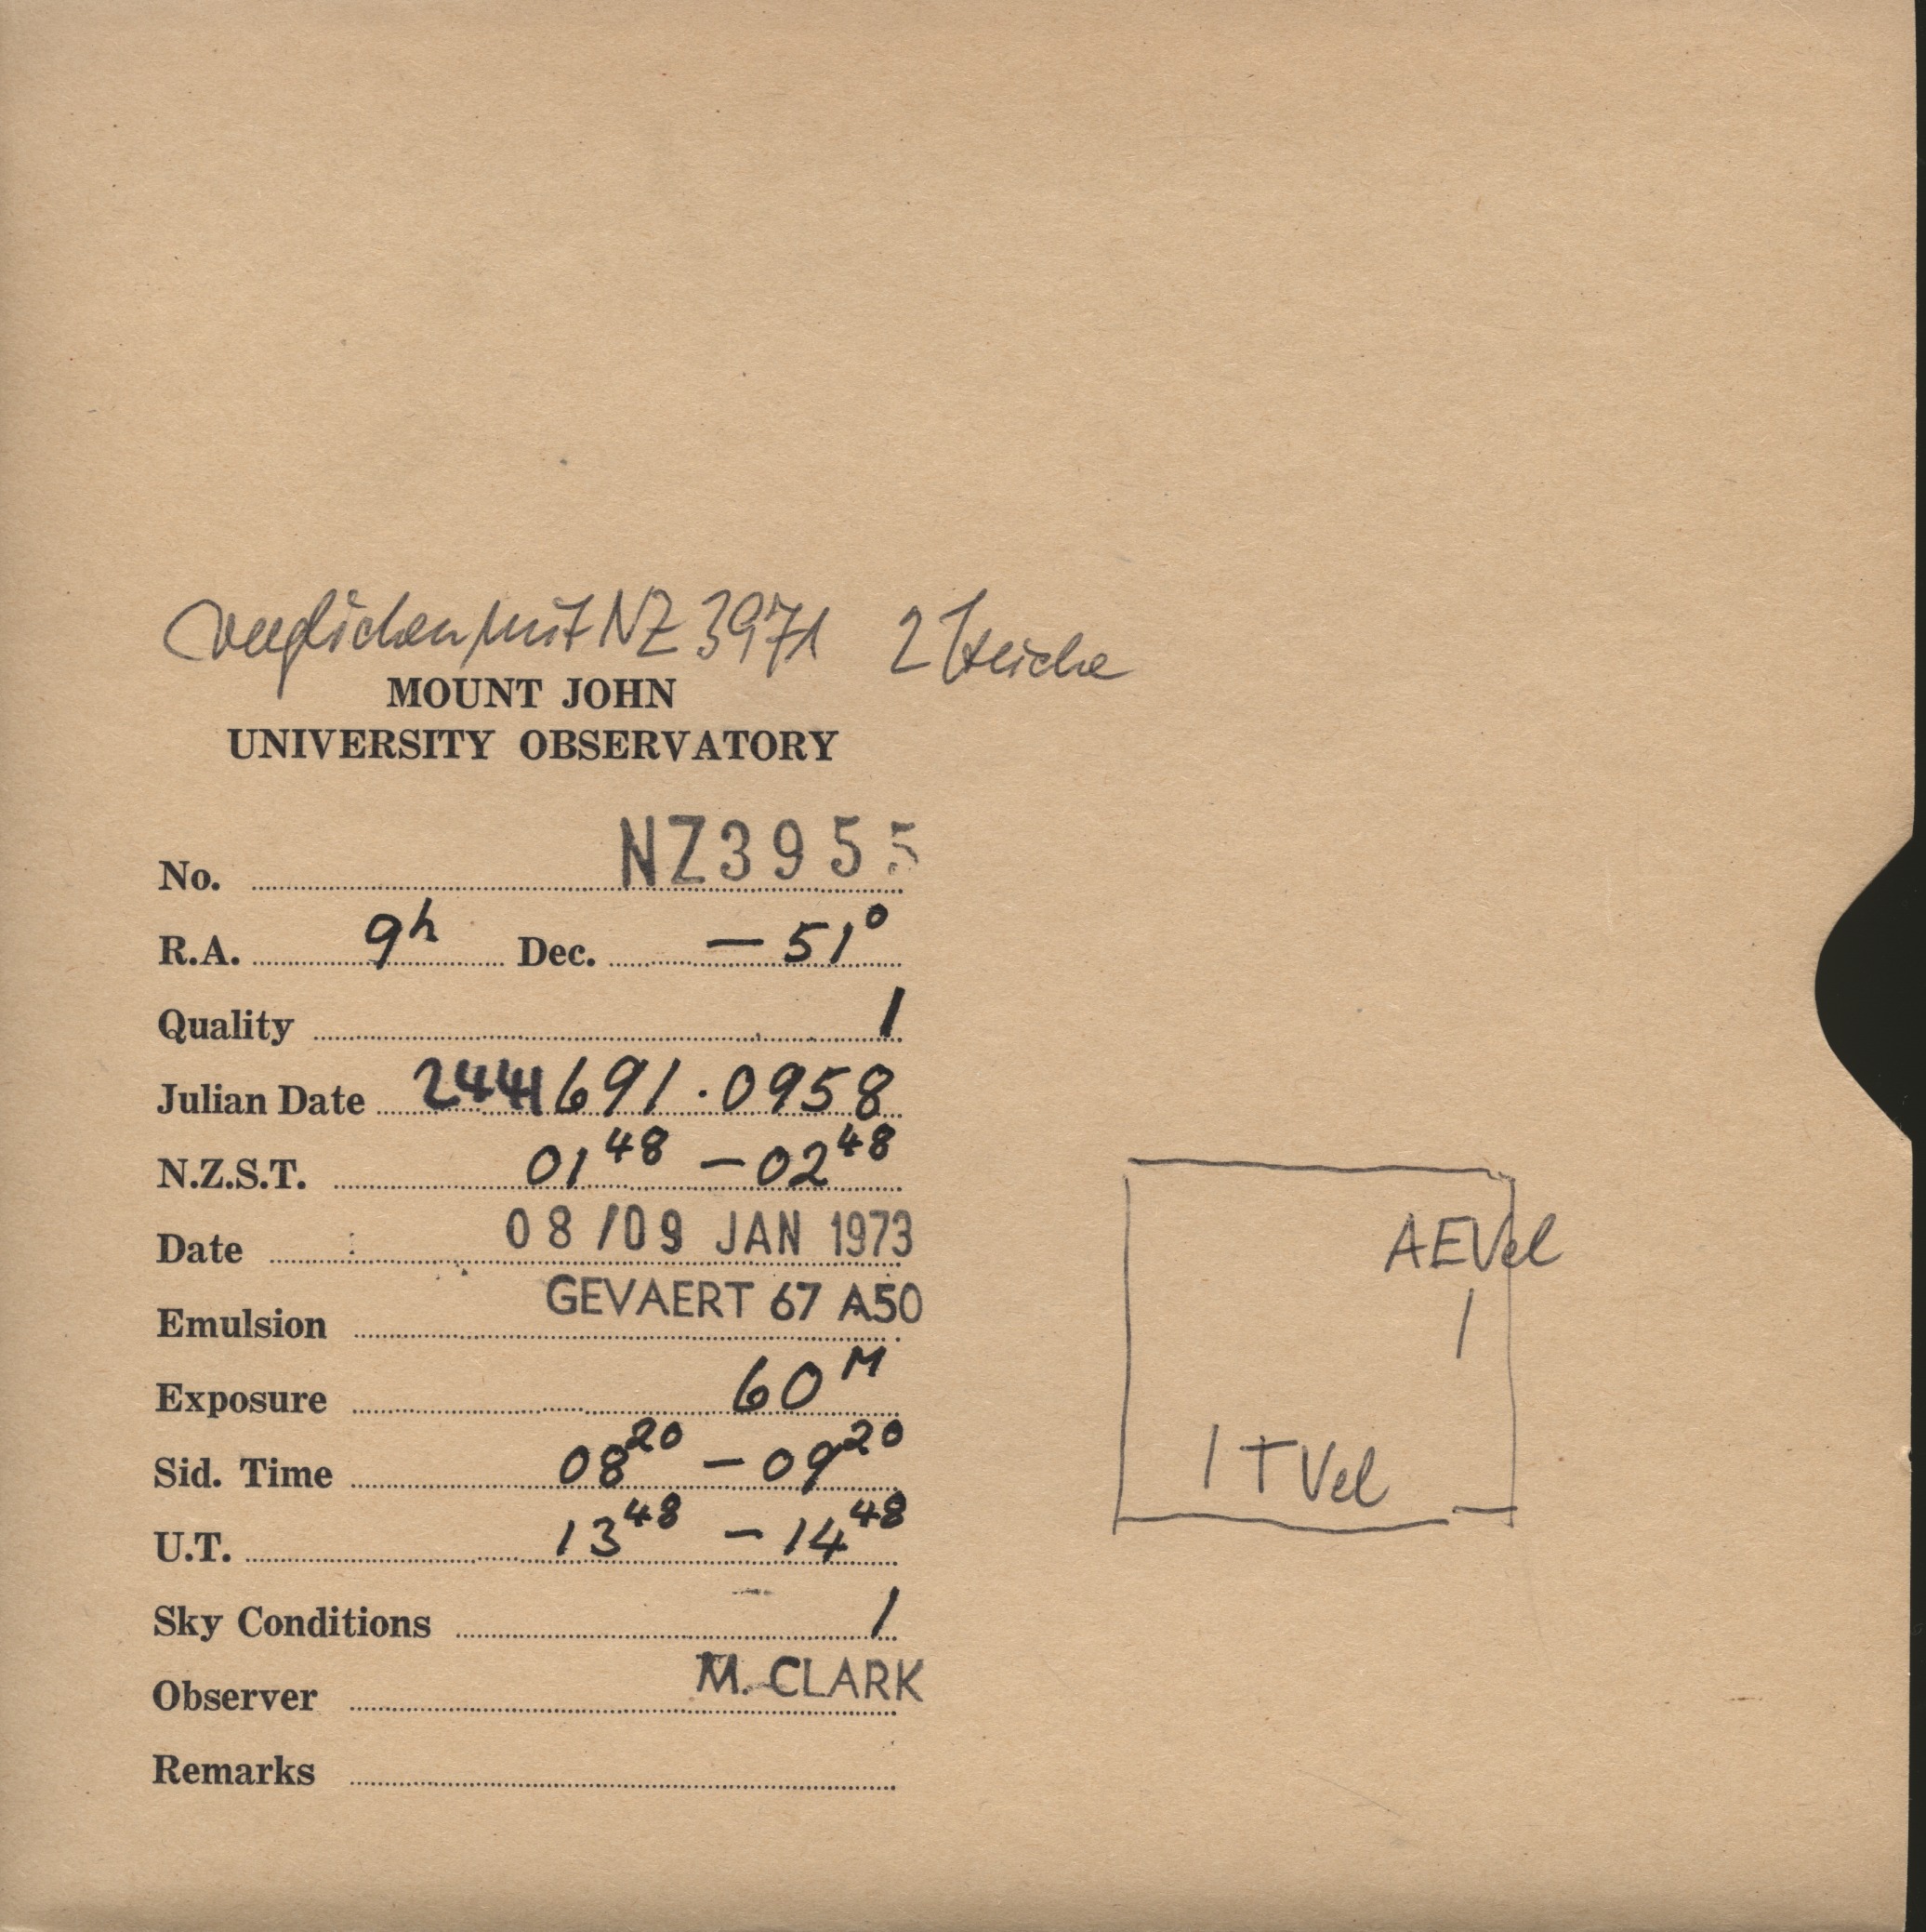 verglichen mit NZ 3971 2 Striche
MOUNT JOHN
UNIVERSITY OBSERVATORY
No. NZ3955
R.A. 9h Dec. – 51°
Quality 1
Julian Date 2441691.0958
N.Z.S.T. 01 48 – 02 48
Date 08/09 JAN 1973
Emulsion GEVAERT 67 A50
Exposure 60 M
Sid. Time 08 20 – 09 20
U.T. 13 48 – 14 48
Sky Conditions 1
Observer M. CLARK
Remarks
AEVel
TVel